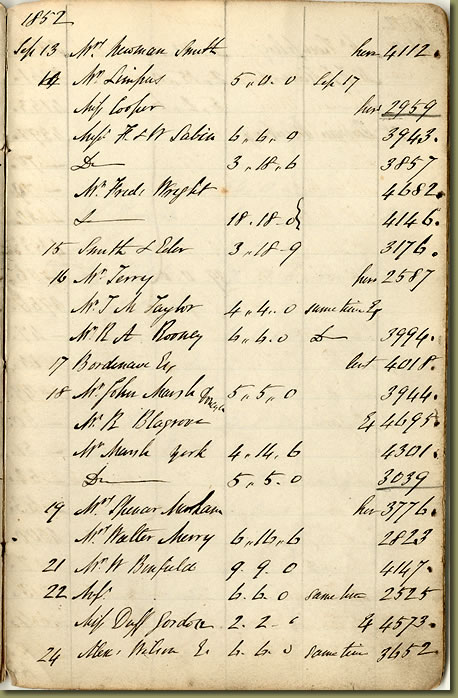 1852
Sep 13 Mrs Newman Smith hers 4112.
14 Mr Limpus 5,,0.0 Sep 17
Miss Cooper hers 2959
Messrs H & W Sabin 6,,6,,0 3943.
Do 3,,18,,6 3857
Mr Fredk Wright 4682.
Do 18.18-0 4146.
15 Smith & Elder 3,,18-9 3176.
16 Mr Terry hers 2587
Mr T M Taylor 4,,4.0 same time Ex
Mr R A Rooney 6,,6.0 Do 3994.
17 Bordenave Esq 4018.
18 Mr John Marsh 5,,5,,0 3944.
Mr R Blagrove Ex 4695.
Mr Marsh York 4,,14,,6 4301.
Do 5,,5-0 3039
19 Mrs Spencer her 3776.
Mrs Walter Merry 6,,16,,6 2823
21 Mr W Binfield 9.9.0 4147.
22 6.6.0 same time 2525
Miss Duff Gordon 2.2- 4573.
24 Alex Wilson E. 6.6.0 same time 3652.